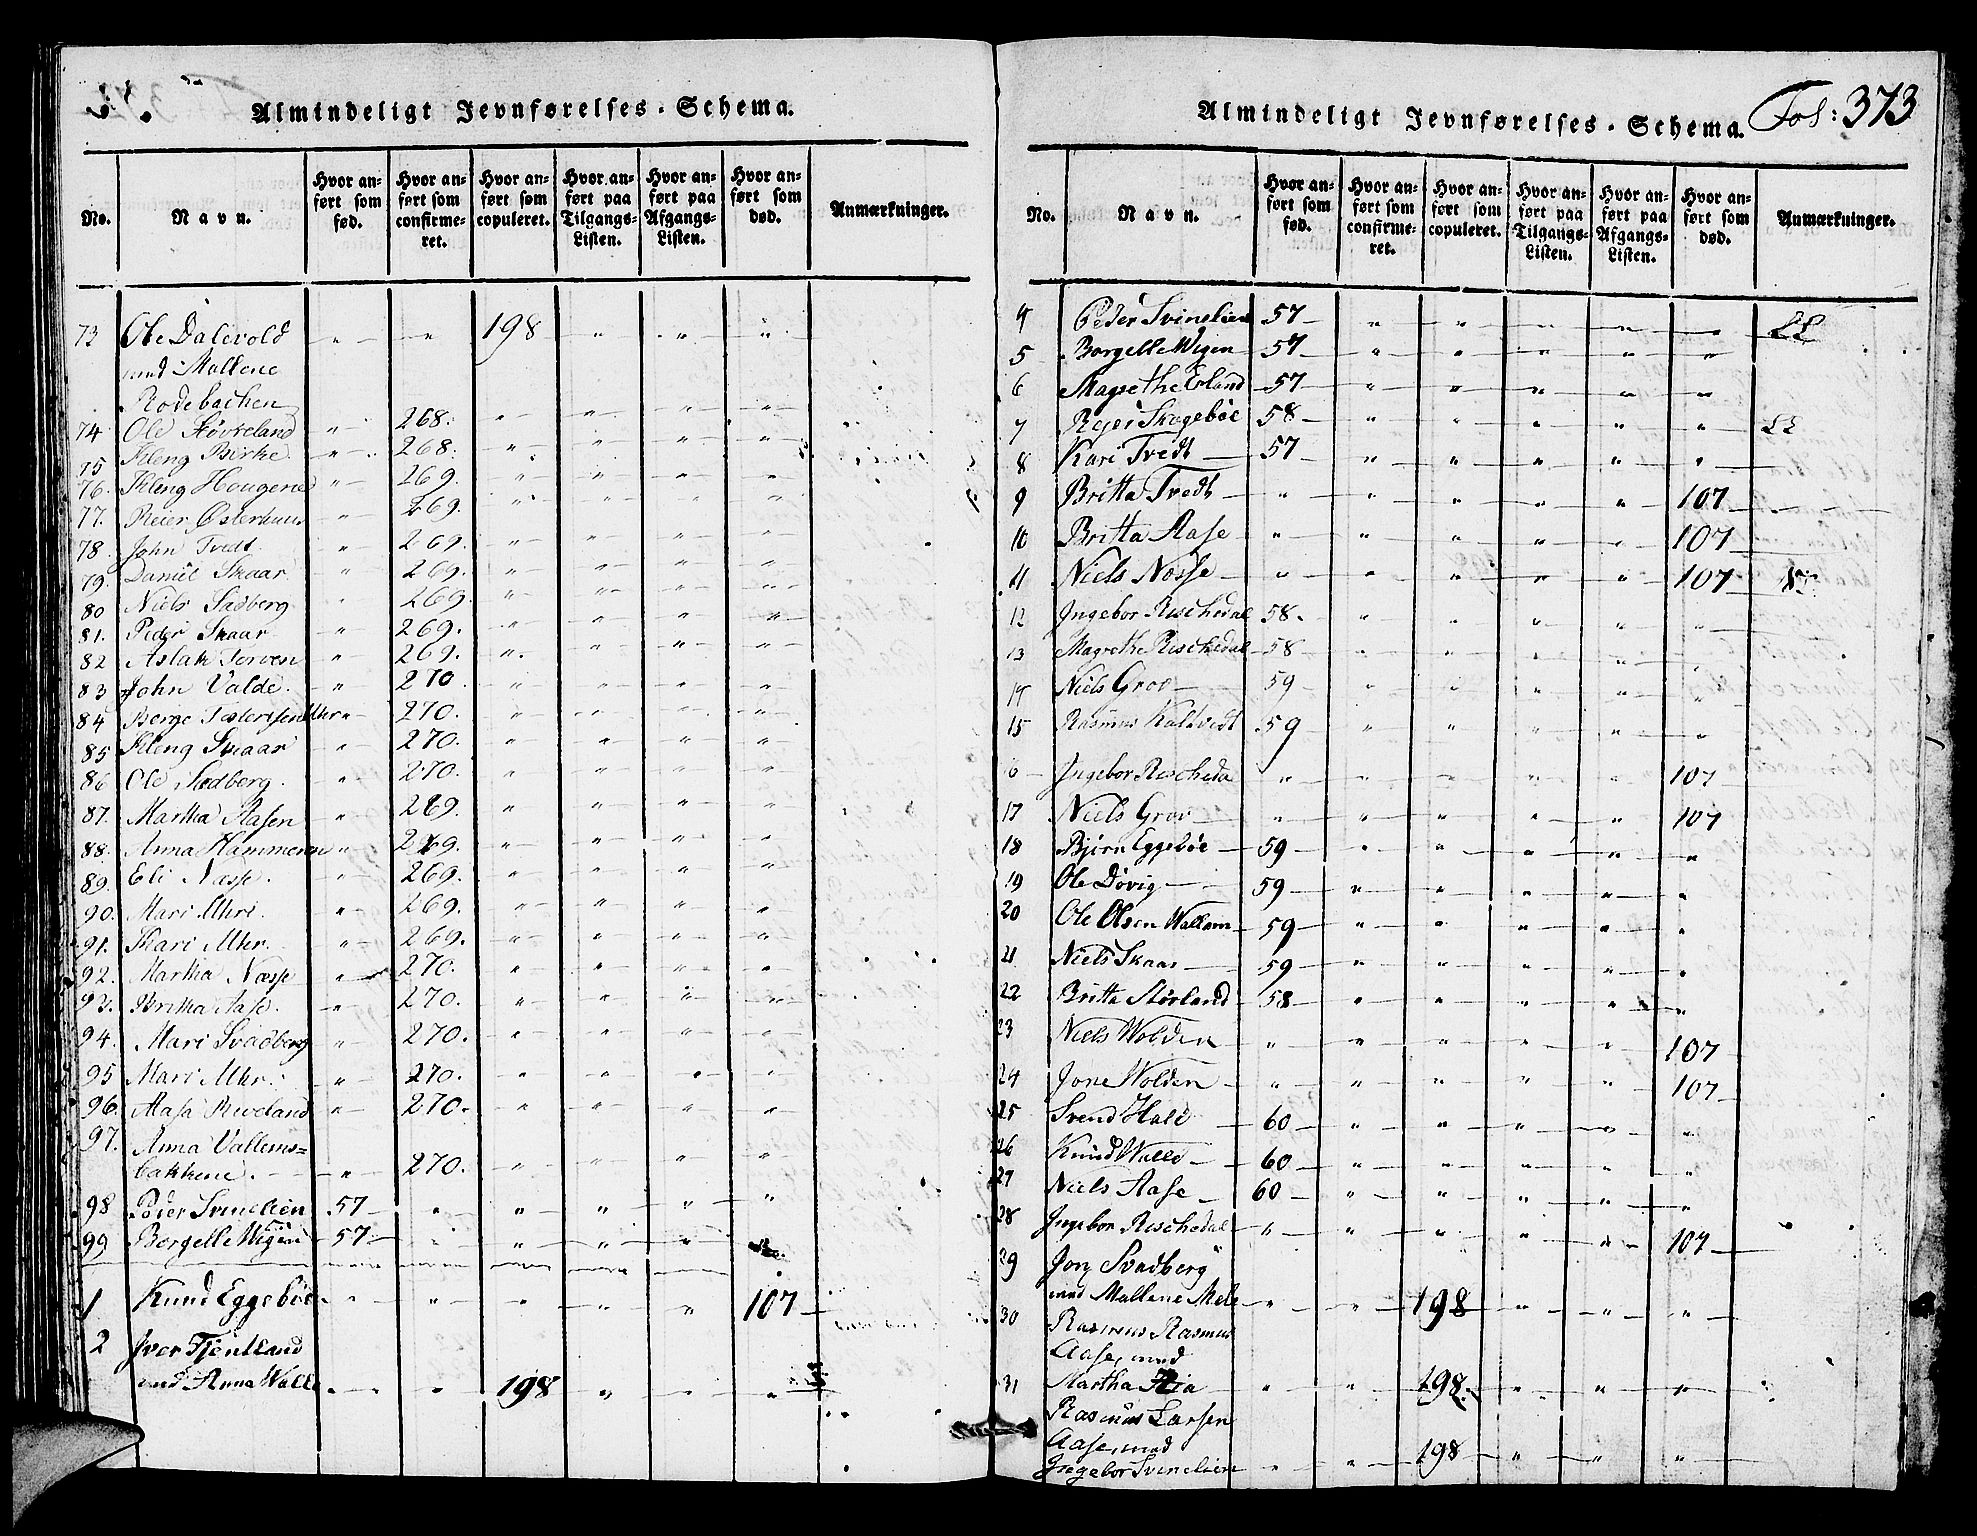 Almindeligt Jevnførelses-Schema.
No. Navn. Hvor anført som fød. Hvor anført som confirmeret. Hvor anført som copuleret. Hvor anført paa Tilgangs-Listen. Hvor anført paa Afgangs-Listen. Hvor anført som død. Anmærkninger.
73 Ole Dalevold " " 198 " " "
med Mallene
Rodebachen
74 Ole Støvreland " 268. " " " "
75 Kleng Birke " 268. " " " "
76. Kleng Hougene " 269. " " " "
77. Reier Østerhuus " 269. " " " "
78. John Tvedt " 269. " " " "
79. Daniel Skaar " 269. " " " "
80 Niels Sadberg " 269. " " " "
81. Peder Skaar " 269. " " " "
82 Aslak Torven " 269. " " " "
83 John Valde. " 270 " " " "
84 Berge " 270. " " " "
85 Kleng Skaar " 270. " " " "
86 Ole Stedberg. " 270. " " " "
87. Martha Aasen " 269. " " " "
88. Anna Hammeren " 269. " " " "
89. Eli Næsse. " 269. " " " "
90. Mari Mhr. " 269. " " " "
91. Kari Mhr. " 269. " " " "
92. Martha Næsse " 270. " " " "
93. Britha Aase. " 270. " " " "
94. Mari Svadberg " 270. " " " "
95 Mari Mhr. " 270. " " " "
96. Aasa Rueland " 270. " " " "
97. Anna Vallems=
bakkene. " 270. " " " "
98 Peder Svinelien 57 " " " " "
99 Borgelle Wigen 57 " " " "
1 Knud Eggebøe " " " " " 107
2 Iver Fjentland
med Anna Walle " " 198 " " "
Almindeligt Jevnførelses-Schema. Fol: 373
No. Navn. Hvor anført som fød. Hvor anført som confirmeret. Hvor anført som copuleret. Hvor anført paa Tilgangs-Listen. Hvor anført paa Afgangs-Listen. Hvor anført som død. Anmærkninger.
4 Peder Svinelien 57 " " " " "
5 Borgelle Wigen 57 " " " " "
6 Magrethe Erland 57 " " " " "
7 Reier Skegebøe 58 " " " " "
8 Kari Tvedt 57 " " " " "
9 Britta Tvedt " " " " " 107
10 Britta Aase " " " " " 107
11 Niels Næsse " " " " " 107
12 Ingebor Reschedal 58 " " " " "
13 Magrethe Reschedal 58 " " " " "
14 Niels Grov 59 " " " " "
15 Rasmus Kaltvedt 59 " " " " "
16 Ingebor Reschedal " " " " " 107
17 Niels Grov " " " " " 107
18 Bjørn Eggebøe 59 " " " " "
19 Ole Døvig 59 " " " " "
20 Ole Olsen Wallem 59 " " " " "
21 Niels Skaar 59 " " " " "
22 Britta Størland 58 " " " " "
23 Niels Wolden " " " " " 107
24 Jone Wolden " " " " " 107
25 Svend Hale 60 " " " " "
26 Knud Walle 60 " " " " "
27 Niels Aase 60 " " " " "
28 Ingebor Reschedal " " " " " 107
29 Jon Svadberg
med Mallene Mele " " 198 " " "
30 Rasmus Rasmus
Aase, med
Martha " " 198 " " "
31 Rasmus Larsen
Aase, med
Ingebor Svinelien " " 198 " " "